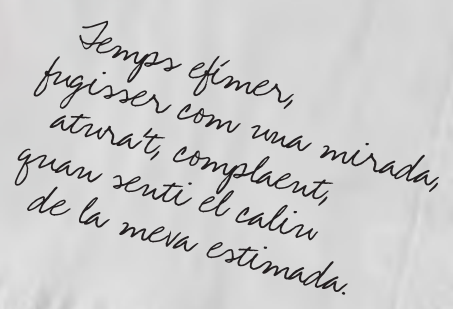 Temps efímer,
fugisser com una mirada,
atura't, complaent,
quan senti el caliu
de la meva estimada.